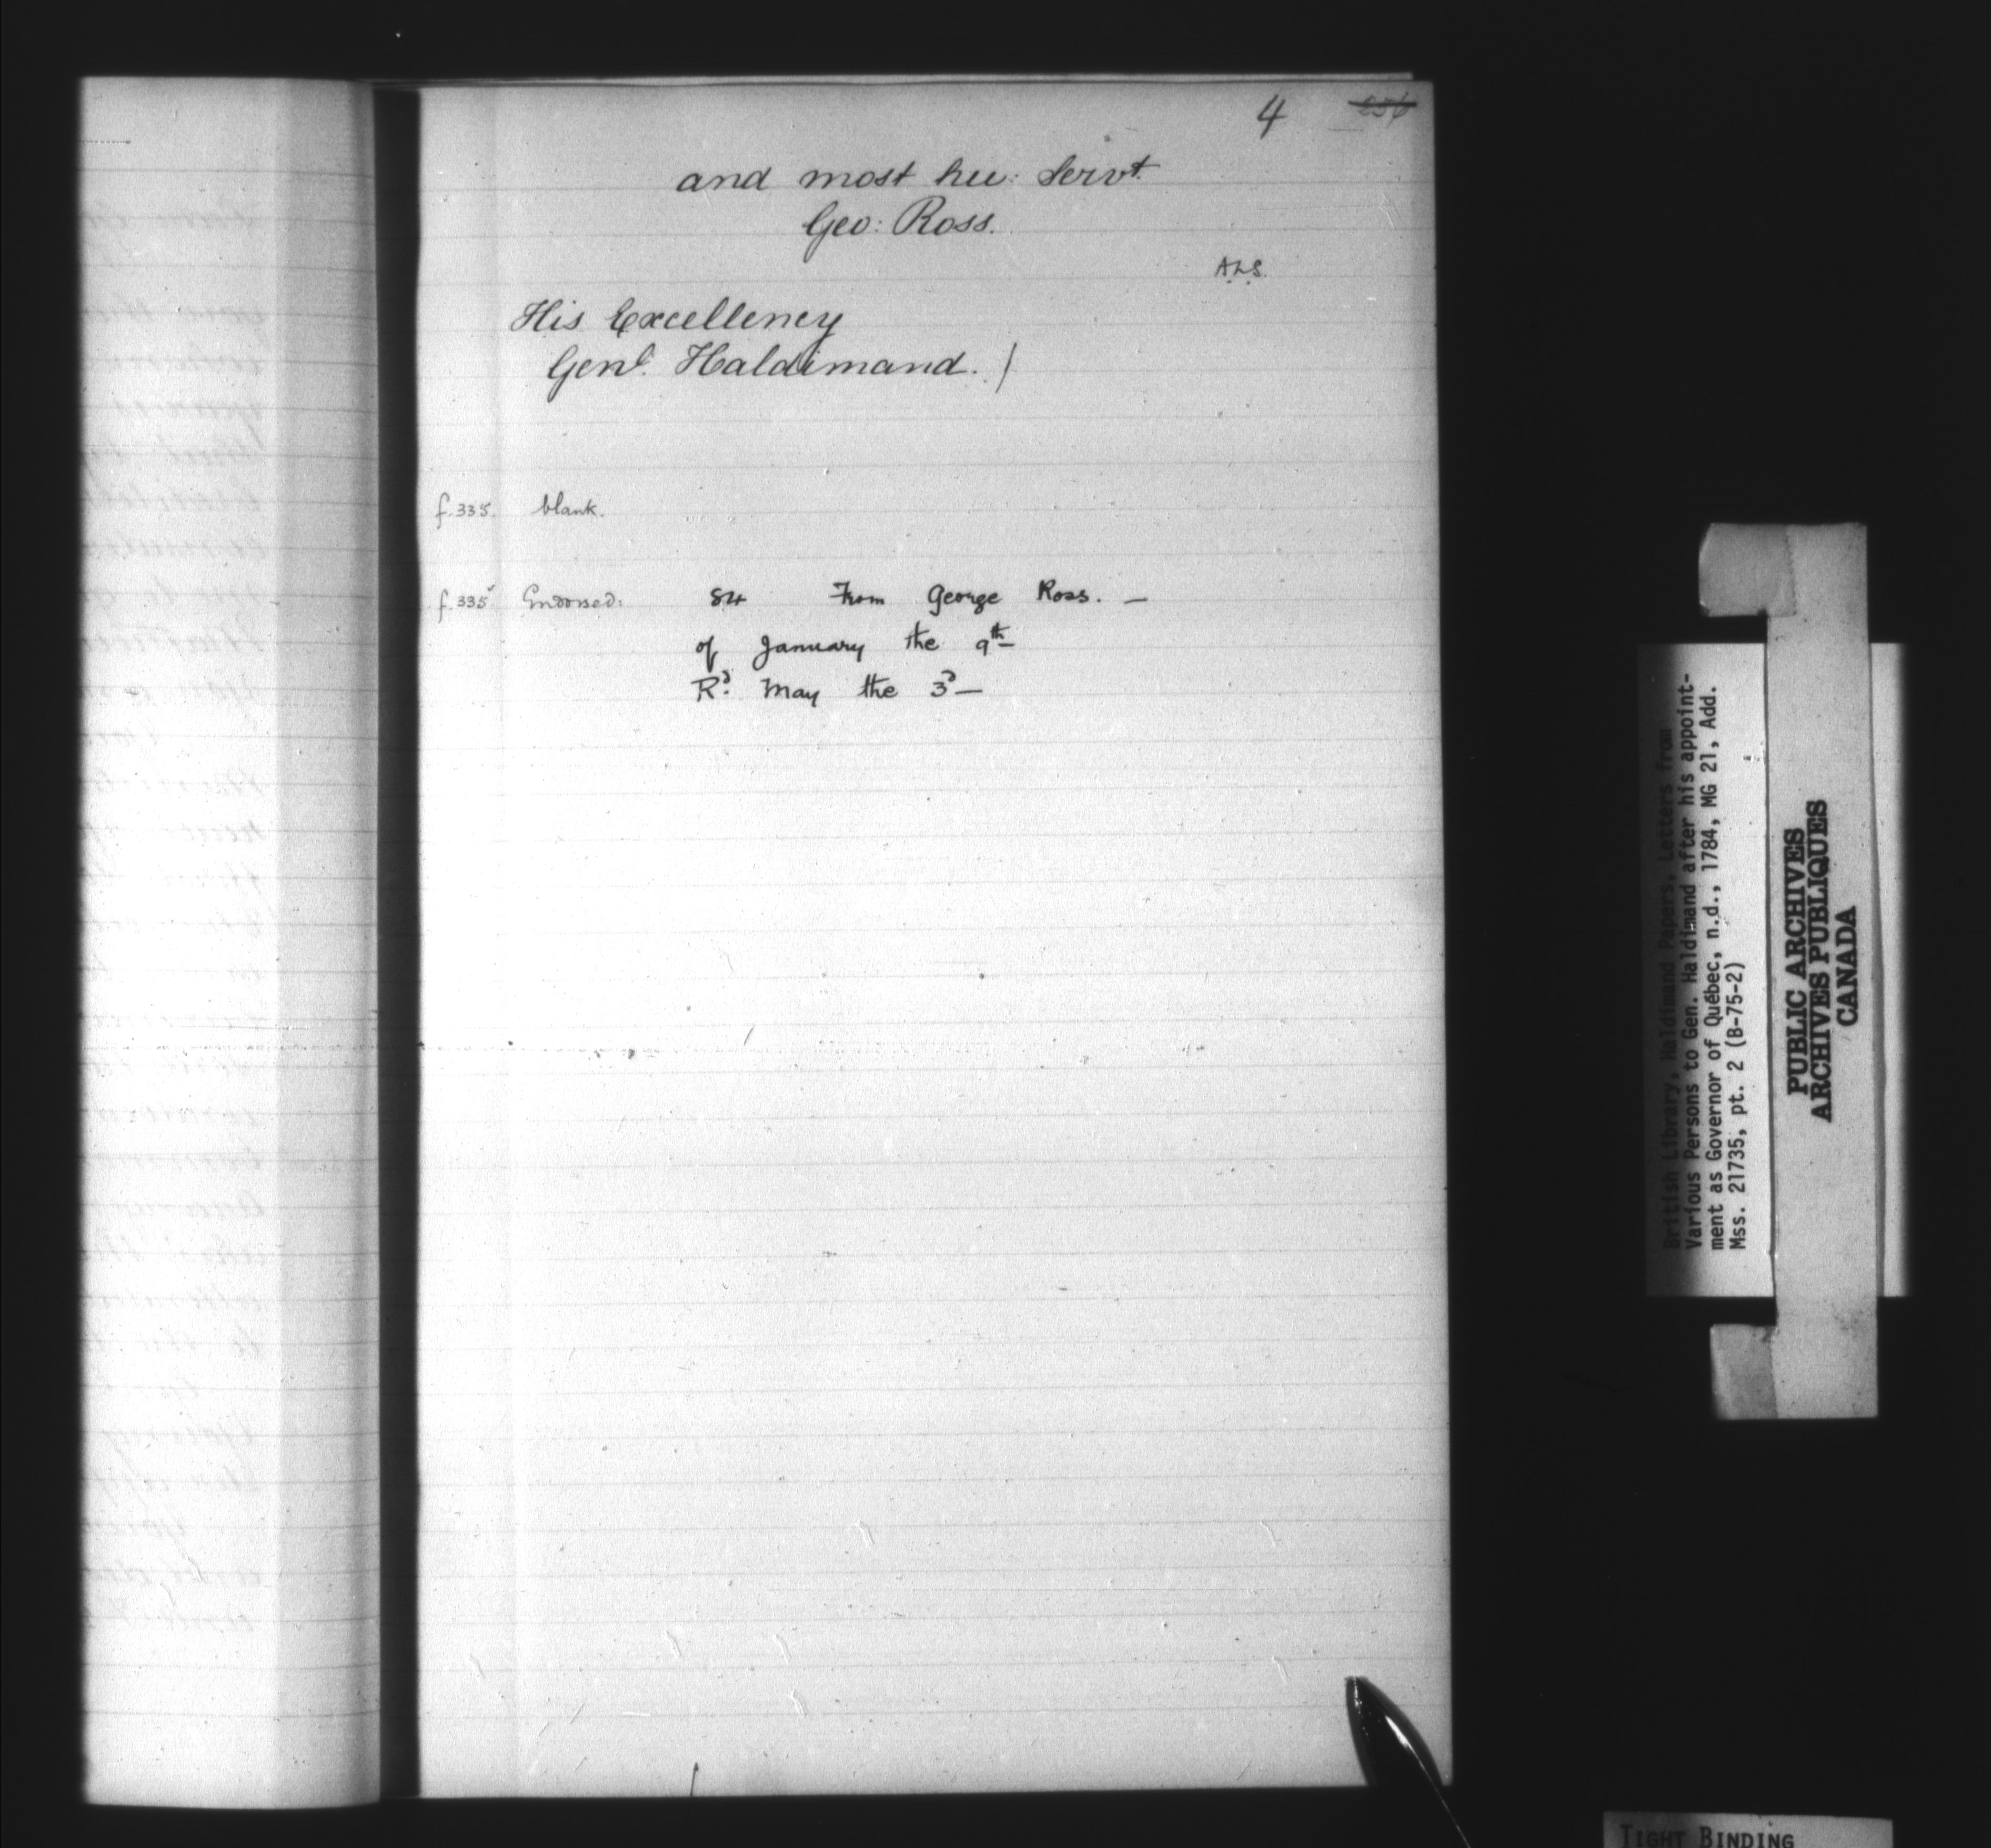 4
and most hu: Servt.
Geo: Ross.
A.L.S.
His Excellency
Genl. Haldimand.)
f.335. blank.
f.335v Endorsed: 84 From George Ross. —
of January the 9th—
Rd. May the 3d—
British Library, Haldimand Papers, Letters from
Various Persons to Gen. Haldimand after his appoint-
ment as Governor of Québec, n.d., 1784, MG 21, Add.
Mss. 21735, pt. 2 (B-75-2)
PUBLIC ARCHIVES
ARCHIVES PUBLIQUES
CANADA
TIGHT BINDING